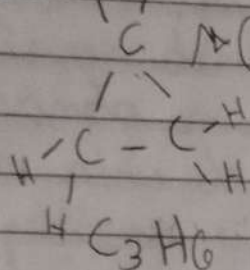 C
C - C H
H H
H C3H6